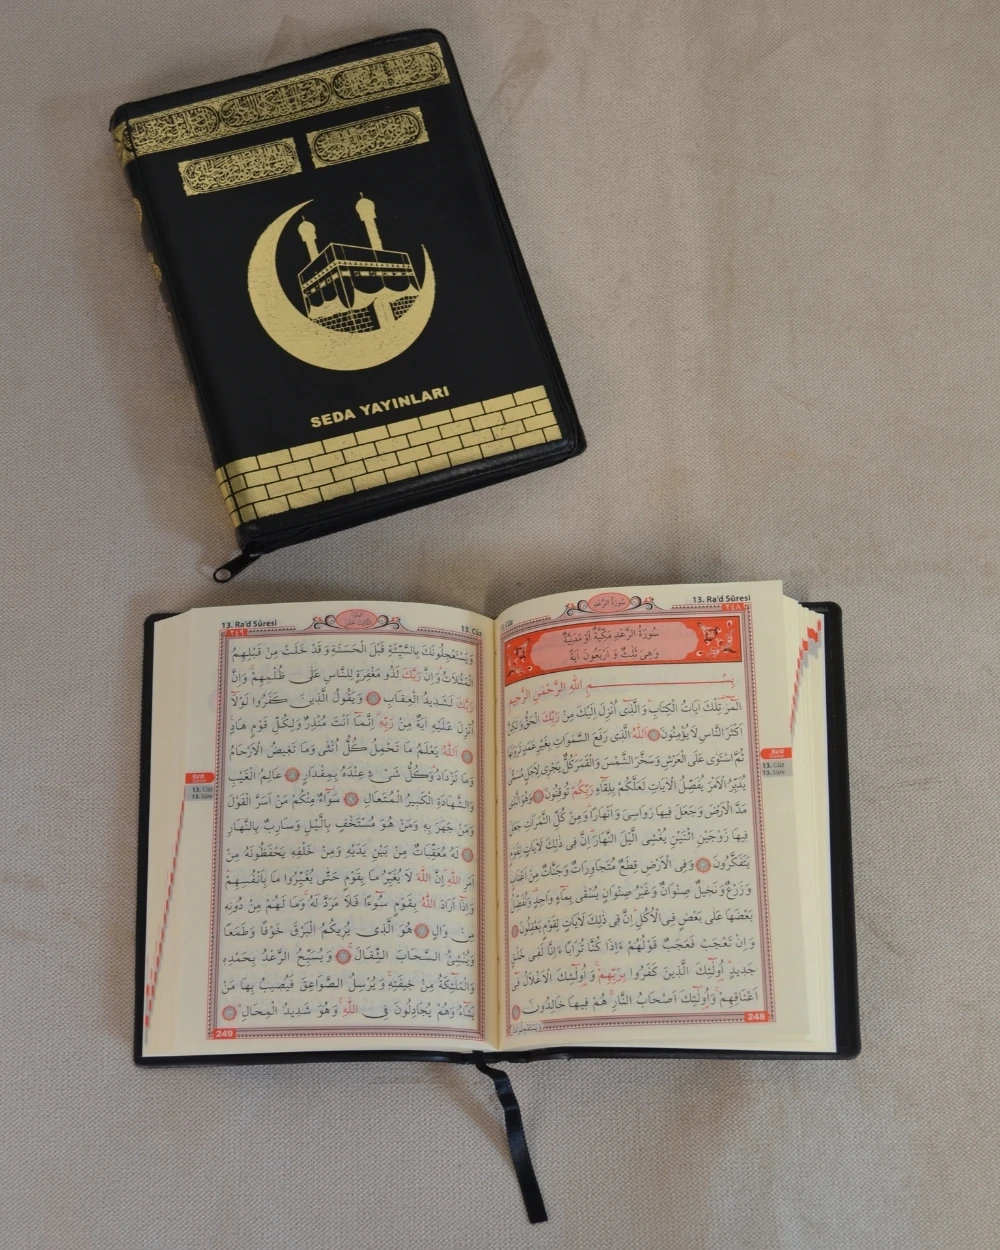 SEDA YAYINLARI
13. Ra'd Sûresi
سُورَةُ الرَّعْدِ
٢٤٨
سُورَةُ الرَّعْدِ مَكِّيَّةٌ اَوْ مَدَنِيَّةٌ
وَهِىَ ثَلٰثٌ وَ اَرْبَعُونَ اٰيَةً
بِسْمِ اللّٰهِ الرَّحْمٰنِ الرَّحِيمِ
الٓمٓرٰ تِلْكَ اٰيَاتُ الْكِتَابِ وَالَّذٖٓى اُنْزِلَ اِلَيْكَ مِنْ رَبِّكَ الْحَقُّ وَلٰكِنَّ
اَكْثَرَ النَّاسِ لَا يُؤْمِنُونَ اَللّٰهُ الَّذٖى رَفَعَ السَّمٰوَاتِ بِغَيْرِ عَمَدٍ تَرَوْنَهَا
ثُمَّ اسْتَوٰى عَلَى الْعَرْشِ وَسَخَّرَ الشَّمْسَ وَالْقَمَرَ كُلٌّ يَجْرٖى لِاَجَلٍ مُسَمًّى
يُدَبِّرُ الْاَمْرَ يُفَصِّلُ الْاٰيَاتِ لَعَلَّكُمْ بِلِقَٓاءِ رَبِّكُمْ تُوقِنُونَ وَهُوَ الَّذٖى
مَدَّ الْاَرْضَ وَجَعَلَ فٖيهَا رَوَاسِىَ وَاَنْهَارًا وَمِنْ كُلِّ الثَّمَرَاتِ جَعَلَ
فٖيهَا زَوْجَيْنِ اثْنَيْنِ يُغْشِى الَّيْلَ النَّهَارَ اِنَّ فٖى ذٰلِكَ لَاٰيَاتٍ لِقَوْمٍ
يَتَفَكَّرُونَ وَفِى الْاَرْضِ قِطَعٌ مُتَجَاوِرَاتٌ وَجَنَّاتٌ مِنْ اَعْنَابٍ
وَزَرْعٌ وَنَخٖيلٌ صِنْوَانٌ وَغَيْرُ صِنْوَانٍ يُسْقٰى بِمَٓاءٍ وَاحِدٍ وَنُفَضِّلُ
بَعْضَهَا عَلٰى بَعْضٍ فِى الْاُكُلِ اِنَّ فٖى ذٰلِكَ لَاٰيَاتٍ لِقَوْمٍ يَعْقِلُونَ
وَاِنْ تَعْجَبْ فَعَجَبٌ قَوْلُهُمْ ءَاِذَا كُنَّا تُرَابًا ءَاِنَّا لَفٖى خَلْقٍ
جَدٖيدٍ اُو۬لٰٓئِكَ الَّذٖينَ كَفَرُوا بِرَبِّهِمْ وَاُو۬لٰٓئِكَ الْاَغْلَالُ فٖٓى
اَعْنَاقِهِمْ وَاُو۬لٰٓئِكَ اَصْحَابُ النَّارِ هُمْ فٖيهَا خَالِدُونَ
248
Ra'd
13. Cüz
13. Sûre
13. Ra'd Sûresi
13. Cüz
٢٤٩
وَيَسْتَعْجِلُونَكَ بِالسَّيِّئَةِ قَبْلَ الْحَسَنَةِ وَقَدْ خَلَتْ مِنْ قَبْلِهِمُ
الْمَثُلَاتُ وَاِنَّ رَبَّكَ لَذُو مَغْفِرَةٍ لِلنَّاسِ عَلٰى ظُلْمِهِمْ وَاِنَّ
رَبَّكَ لَشَدٖيدُ الْعِقَابِ وَيَقُولُ الَّذٖينَ كَفَرُوا لَوْلَٓا
اُنْزِلَ عَلَيْهِ اٰيَةٌ مِنْ رَبِّهٖ اِنَّمَٓا اَنْتَ مُنْذِرٌ وَلِكُلِّ قَوْمٍ هَادٍ
اَللّٰهُ يَعْلَمُ مَا تَحْمِلُ كُلُّ اُنْثٰى وَمَا تَغٖيضُ الْاَرْحَامُ
وَمَا تَزْدَادُ وَكُلُّ شَىْءٍ عِنْدَهُ بِمِقْدَارٍ عَالِمُ الْغَيْبِ
وَالشَّهَادَةِ الْكَبٖيرُ الْمُتَعَالِ سَوَٓاءٌ مِنْكُمْ مَنْ اَسَرَّ الْقَوْلَ
وَمَنْ جَهَرَ بِهٖ وَمَنْ هُوَ مُسْتَخْفٍ بِالَّيْلِ وَسَارِبٌ بِالنَّهَارِ
لَهُ مُعَقِّبَاتٌ مِنْ بَيْنِ يَدَيْهِ وَمِنْ خَلْفِهٖ يَحْفَظُونَهُ مِنْ
اَمْرِ اللّٰهِ اِنَّ اللّٰهَ لَا يُغَيِّرُ مَا بِقَوْمٍ حَتّٰى يُغَيِّرُوا مَا بِاَنْفُسِهِمْ
وَاِذَٓا اَرَادَ اللّٰهُ بِقَوْمٍ سُٓوءًا فَلَا مَرَدَّ لَهُ وَمَا لَهُمْ مِنْ دُونِهٖ
مِنْ وَالٍ هُوَ الَّذٖى يُرٖيكُمُ الْبَرْقَ خَوْفًا وَطَمَعًا
وَيُنْشِئُ السَّحَابَ الثِّقَالَ وَيُسَبِّحُ الرَّعْدُ بِحَمْدِهٖ
وَالْمَلٰٓئِكَةُ مِنْ خٖيفَتِهٖ وَيُرْسِلُ الصَّوَاعِقَ فَيُصٖيبُ بِهَا مَنْ
يَشَٓاءُ وَهُمْ يُجَادِلُونَ فِى اللّٰهِ وَهُوَ شَدٖيدُ الْمِحَالِ
249
Ra'd
13. Cüz
13. Sûre